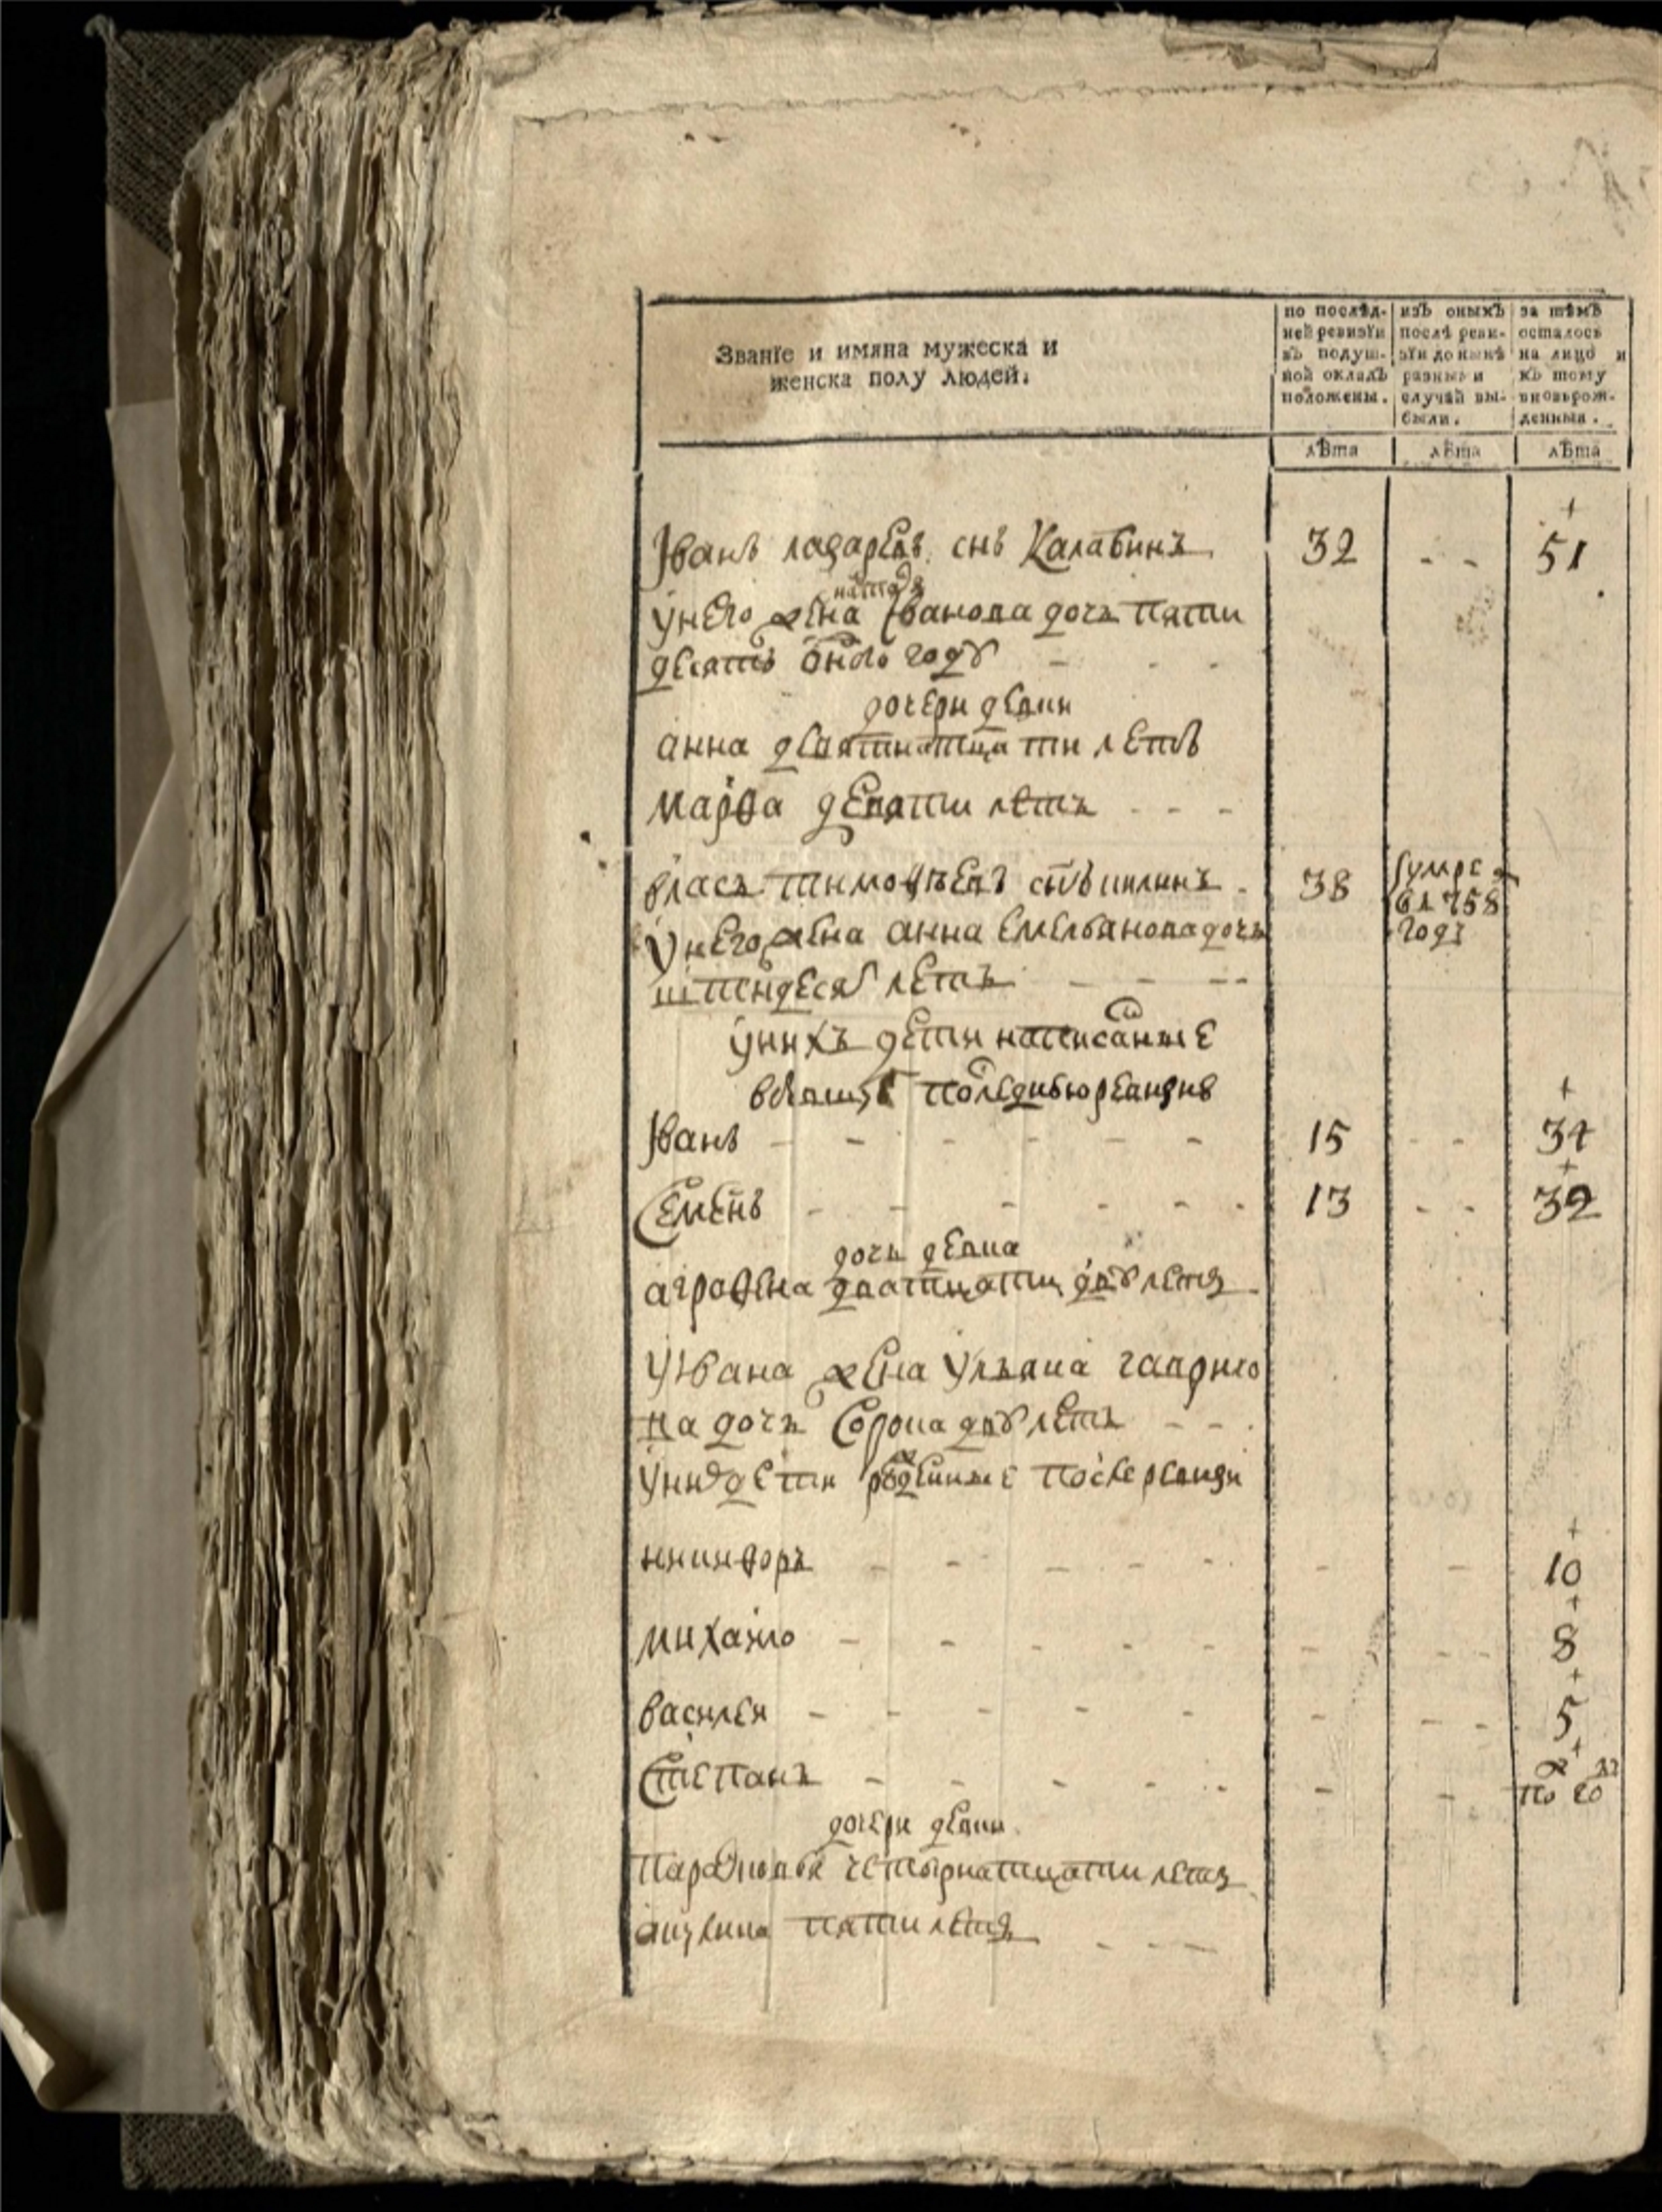 Званїе и имяна мужеска и
женска полу людей.
по послѣд-
ней ревизїи
въ подуш-
ной окладъ
положены.
изъ оныхъ
послѣ реви-
зїи до нынѣ
разными
случаи вы-
были.
за тѣмъ
осталось
на лицо и
къ тому
вновьрож-
денныя.
лѣта
лѣта
лѣта
Іванъ лазаревъ снъ Калабинъ 32 - - 51
наста
унего жена Іванова дочь пяти
десятъ оного году
дочери девки
анна девятнатцати летъ
марфа девяти летъ
власъ тимофѣевъ снъ 38 умре
в 1758
году
унего жена анна емельянова дочь
шездесятъ летъ
унихъ дети написанные
последнюю ревизию
Іванъ 15 - - 34
Семенъ 13 - - 32
дочь девка
аграфена дватцати двухъ летъ
уІвана жена ульяна гаврило
ва дочь Сорока двухъ летъ
уних дети рожденные после ревизи
никифоръ - - 10
михаило - - 8
василей - - 5
Степанъ - - пол год
дочери девки
парасковья четырнатцати летъ
акулина пяти летъ